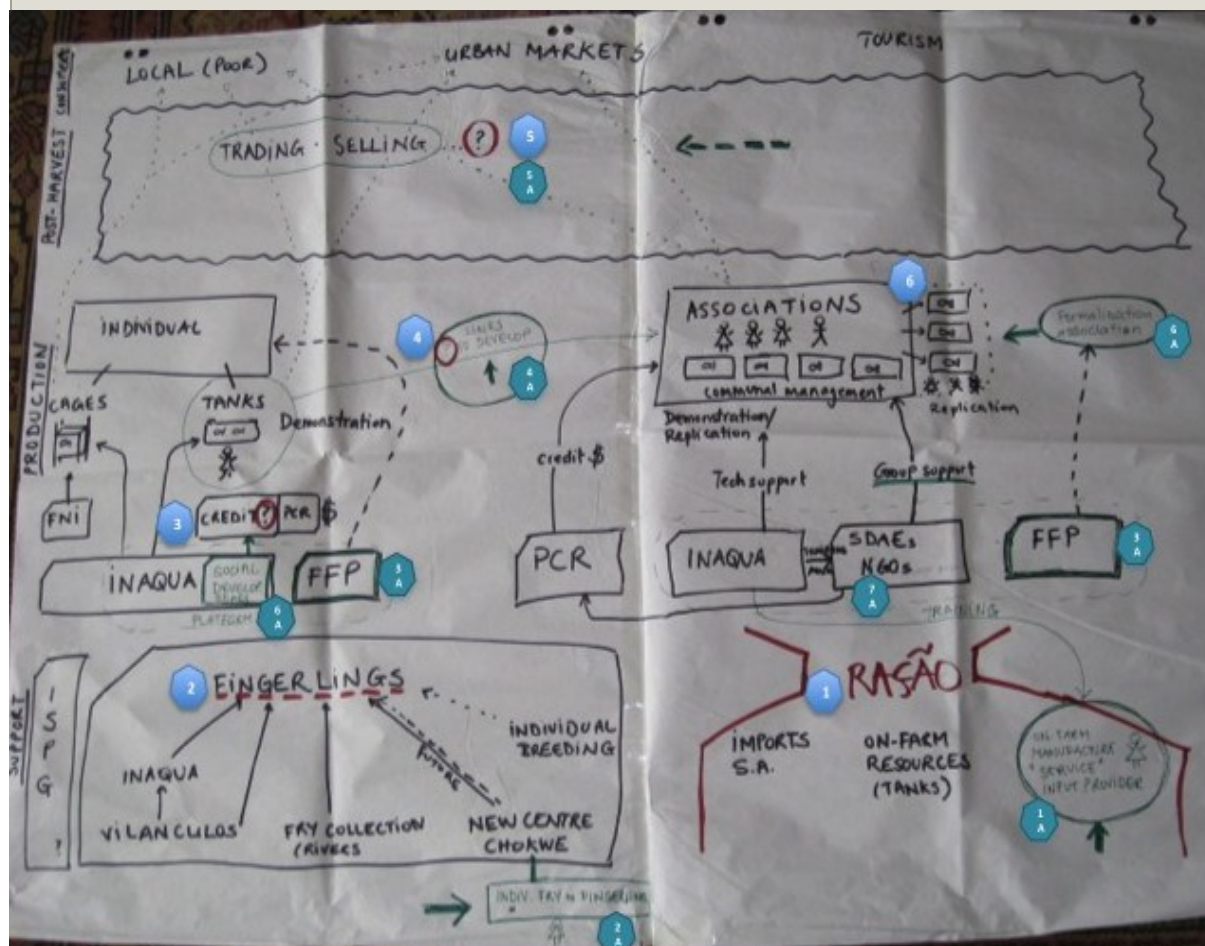 LOCAL (POOR)
URBAN MARKETS
TOURISM
CONSUMERS
POST-HARVEST
TRADING - SELLING
?
5
5
A
PRODUCTION
INDIVIDUAL
CAGES
TANKS
Demonstration
FNI
3
CREDIT ? PCR $
INAQUA
SOCIAL
DEVELOP
FFP
3
A
PLATFORM
6
A
4
LINKS
TO DEVELOP
4
A
ASSOCIATIONS
6
communal management
Replication
Formalisation
Association
6
A
Demonstration/
Replication
credit $
Tech support
Group support
PCR
INAQUA
SDAEs
NGOs
7
A
FFP
3
A
TRAINING
SUPPORT
ISPG ?
2
FINGERLINGS
INDIVIDUAL
BREEDING
FUTURE
INAQUA
VILANCULOS
FRY COLLECTION
(RIVERS
NEW CENTRE
CHOKWE
INDIV. FRY TO FINGERLING
2
A
1
RAÇÃO
IMPORTS
S.A.
ON-FARM
RESOURCES
(TANKS)
ON-FARM
MANUFACTURE
"SERVICE"
INPUT PROVIDER
1
A